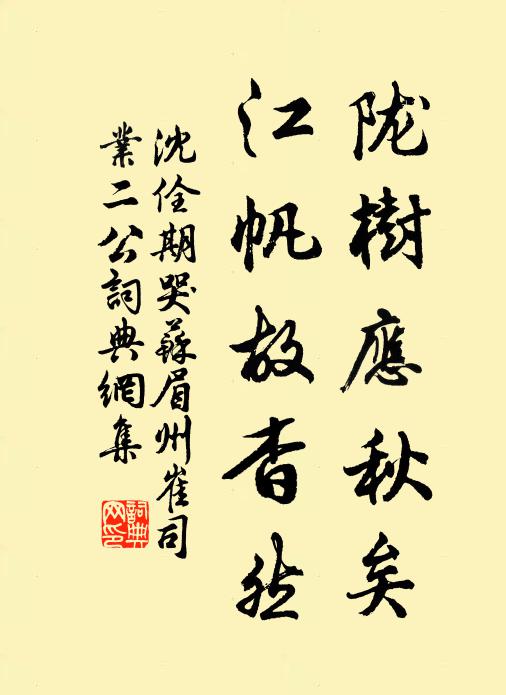 陇樹應秋矣
江帆故杳然
沈佺期哭蘇眉州崔司
業二公詞典網集
詞典網印